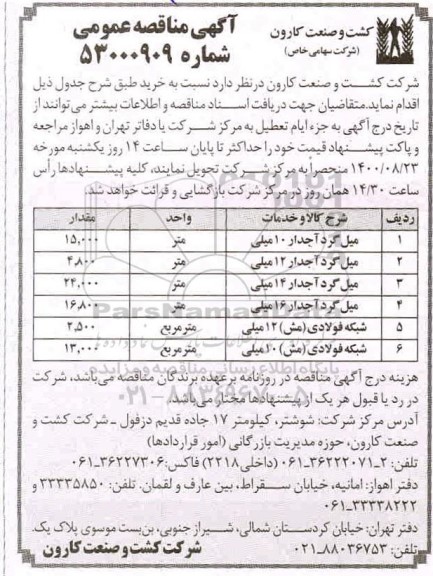 کشت و صنعت کارون
(شرکت سهامی خاص)
آگهی مناقصه عمومی
شماره ۵۳۰۰۰۹۰۹
شرکت کشت و صنعت کارون درنظر دارد نسبت به خرید طبق شرح جدول ذیل
اقدام نماید. متقاضیان جهت دریافت اسناد مناقصه و اطلاعات بیشتر می‌توانند از
تاریخ درج آگهی به جزء ایام تعطیل به مرکز شرکت یا دفاتر تهران و اهواز مراجعه
و پاکت پیشنهاد قیمت خود را حداکثر تا پایان ساعت ۱۴ روز یکشنبه مورخه
۱۴۰۰/۰۸/۲۳ منحصراً به مرکز شرکت تحویل نمایند، کلیه پیشنهادها رأس
ساعت ۱۴/۳۰ همان روز در مرکز شرکت بازگشایی و قرائت خواهد شد.
ردیف شرح کالا و خدمات واحد مقدار
۱ میل گرد آجدار ۱۰ میلی متر ۱۵,۰۰۰
۲ میل گرد آجدار ۱۲ میلی متر ۴,۸۰۰
۳ میل گرد آجدار ۱۴ میلی متر ۲۴,۰۰۰
۴ میل گرد آجدار ۱۶ میلی متر ۱۶,۸۰۰
۵ شبکه فولادی (مش) ۱۲ میلی مترمربع ۲,۵۰۰
۶ شبکه فولادی (مش) ۱۰ میلی مترمربع ۱۳,۰۰۰
ParsNamadData
پایگاه اطلاع رسانی مناقصه و مزایده
هزینه درج آگهی مناقصه در روزنامه برعهده برندگان مناقصه می‌باشد، شرکت
در رد یا قبول هر یک از پیشنهادها مختار می‌باشد.
آدرس مرکز شرکت: شوشتر، کیلومتر ۱۷ جاده قدیم دزفول ـ شرکت کشت و
صنعت کارون، حوزه مدیریت بازرگانی (امور قراردادها)
تلفن: ۲ـ۳۶۲۲۲۰۷۱ـ۰۶۱ (داخلی ۲۲۱۸) فاکس: ۳۶۲۲۷۳۰۶ـ۰۶۱
دفتر اهواز: امانیه، خیابان سقراط، بین عارف و لقمان. تلفن: ۳۳۳۳۵۸۵۰ و
۳۳۳۳۸۲۲۲ـ۰۶۱
دفتر تهران: خیابان کردستان شمالی، شیراز جنوبی، بن‌بست موسوی پلاک یک.
تلفن: ۸۸۰۳۶۷۵۳ـ۰۲۱
شرکت کشت و صنعت کارون